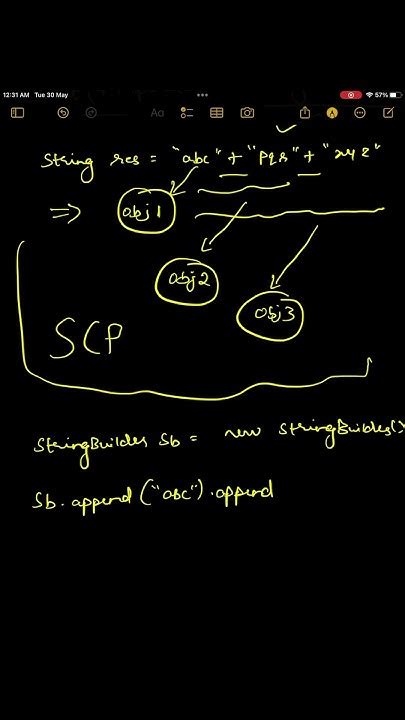 12:31 AM Tue 30 May
57%
Aa
String res = "abc" + "pqr" + "xyz"
⇒ obj 1
obj2
obj3
SCP
StringBuilder Sb = new StringBuilder()
Sb.append("abc").append